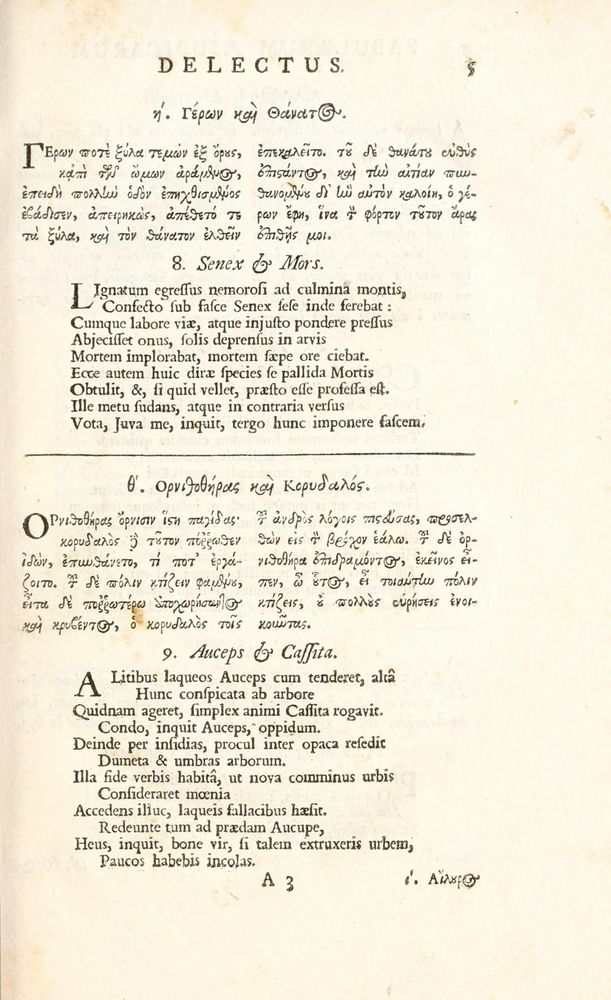 DELECTUS. 5
η'. Γέρων καὶ Θάνατος.
ΓΕρων ποτὲ ξύλα τεμὼν ἐξ ὄρους,
κἀπὶ τῶν ὤμων ἀράμενος,
ἐπειδὴ πολλὴν ὁδὸν ἐπηχθισμένος
ἐβάδισεν, ἀπειρηκὼς, ἀπέθετό τε
τὰ ξύλα, καὶ τὸν θάνατον ἐλθεῖν
ἐπεκαλεῖτο. τοῦ δὲ θανάτου εὐθὺς
ἐπιστάντος, καὶ τὴν αἰτίαν πυν-
θανομένου δι' ἣν αὐτὸν καλοίη, ὁ γέ-
ρων ἔφη, ἵνα τὸν φόρτον τοῦτον ἄρας
ἐπιθῇς μοι.
8. Senex & Mors.
LIgnatum egressus nemorosi ad culmina montis,
Confecto sub fasce Senex sese inde ferebat:
Cumque labore viæ, atque injusto pondere pressus
Abjecisset onus, solis deprensus in arvis
Mortem implorabat, mortem sæpe ore ciebat.
Ecce autem huic diræ species se pallida Mortis
Obtulit, &, si quid vellet, præsto esse professa est.
Ille metu sudans, atque in contraria versus
Vota, Juva me, inquit, tergo hunc imponere fascem.
θ'. Ορνιθοθήρας καὶ Κορυδαλός.
ΟΡνιθοθήρας ὄρνισιν ἵστη παγίδας·
κορυδαλὸς δὲ τοῦτον πόῤῥωθεν
ἰδὼν, ἐπυνθάνετο, τί ποτ' ἐργά-
ζοιτο. τοῦ δὲ πόλιν κτίζειν φαμένου,
εἶτα δὲ ποῤῥωτέρω ὑποχωρήσαντος
καὶ κρυβέντος, ὁ κορυδαλὸς τοῖς
τοῦ ἀνδρὸς λόγοις πιστεύσας, προσελ-
θὼν εἰς τὸν βρόχον ἑάλω. τοῦ δὲ ὀρ-
νιθοθήρα ἐπιδραμόντος, ἐκεῖνος εἶ-
πεν, ὦ οὗτος, εἰ τοιαύτην πόλιν
κτίζεις, οὐ πολλοὺς εὑρήσεις ἐνοι-
κοῦντας.
9. Auceps & Cassita.
ALitibus laqueos Auceps cum tenderet, altâ
Hunc conspicata ab arbore
Quidnam ageret, simplex animi Cassita rogavit.
Condo, inquit Auceps, oppidum.
Deinde per insidias, procul inter opaca resedit
Dumeta & umbras arborum.
Illa fide verbis habitâ, ut nova comminus urbis
Consideraret mœnia
Accedens illuc, laqueis fallacibus hæsit.
Redeunte tum ad prædam Aucupe,
Heus, inquit, bone vir, si talem extruxeris urbem,
Paucos habebis incolas.
A 3 ι'. Αἴλουρος